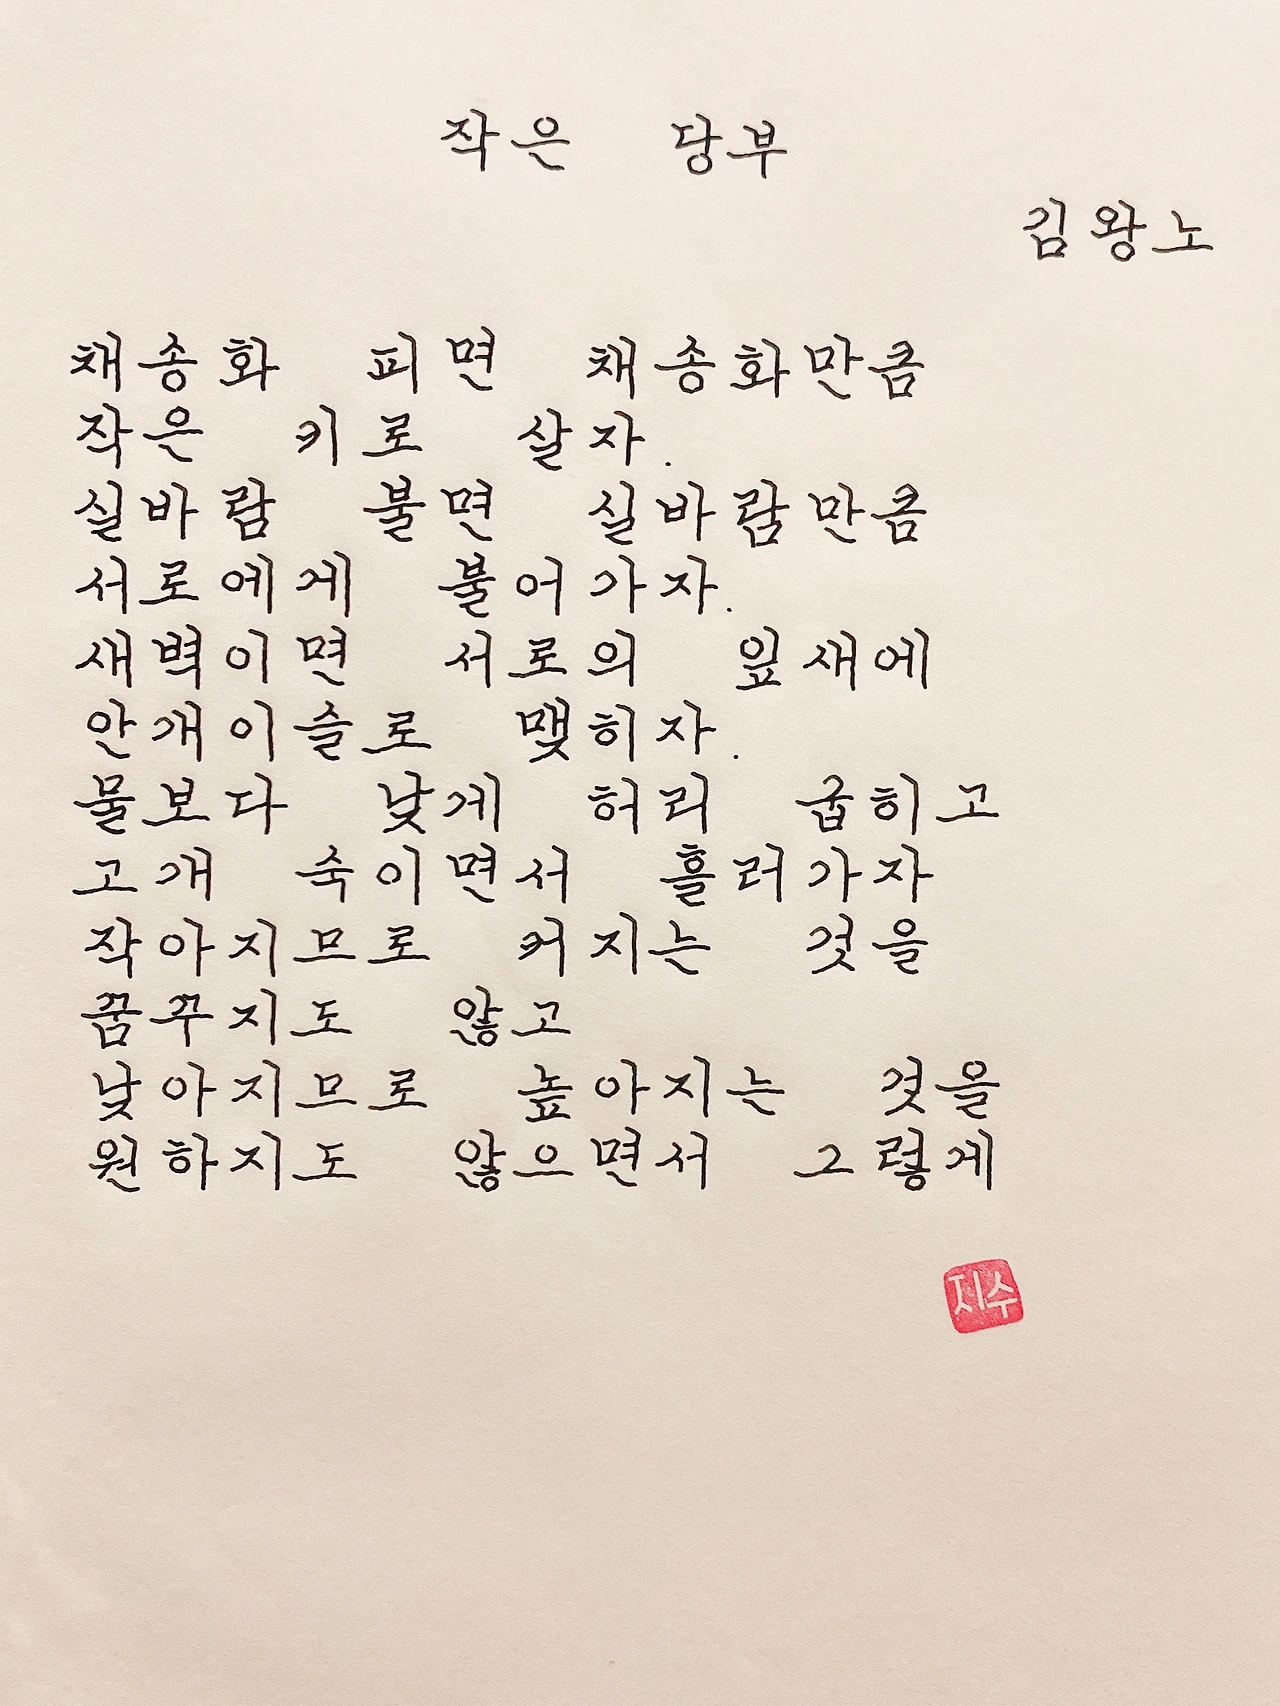 작은 당부
김왕노
채송화 피면 채송화만큼
작은 키로 살자.
실바람 불면 실바람만큼
서로에게 불어가자.
새벽이면 서로의 잎새에
안개이슬로 맺히자.
물보다 낮게 허리 굽히고
고개 숙이면서 흘러가자
작아지므로 커지는 것을
꿈꾸지도 않고
낮아지므로 높아지는 것을
원하지도 않으면서 그렇게
지수